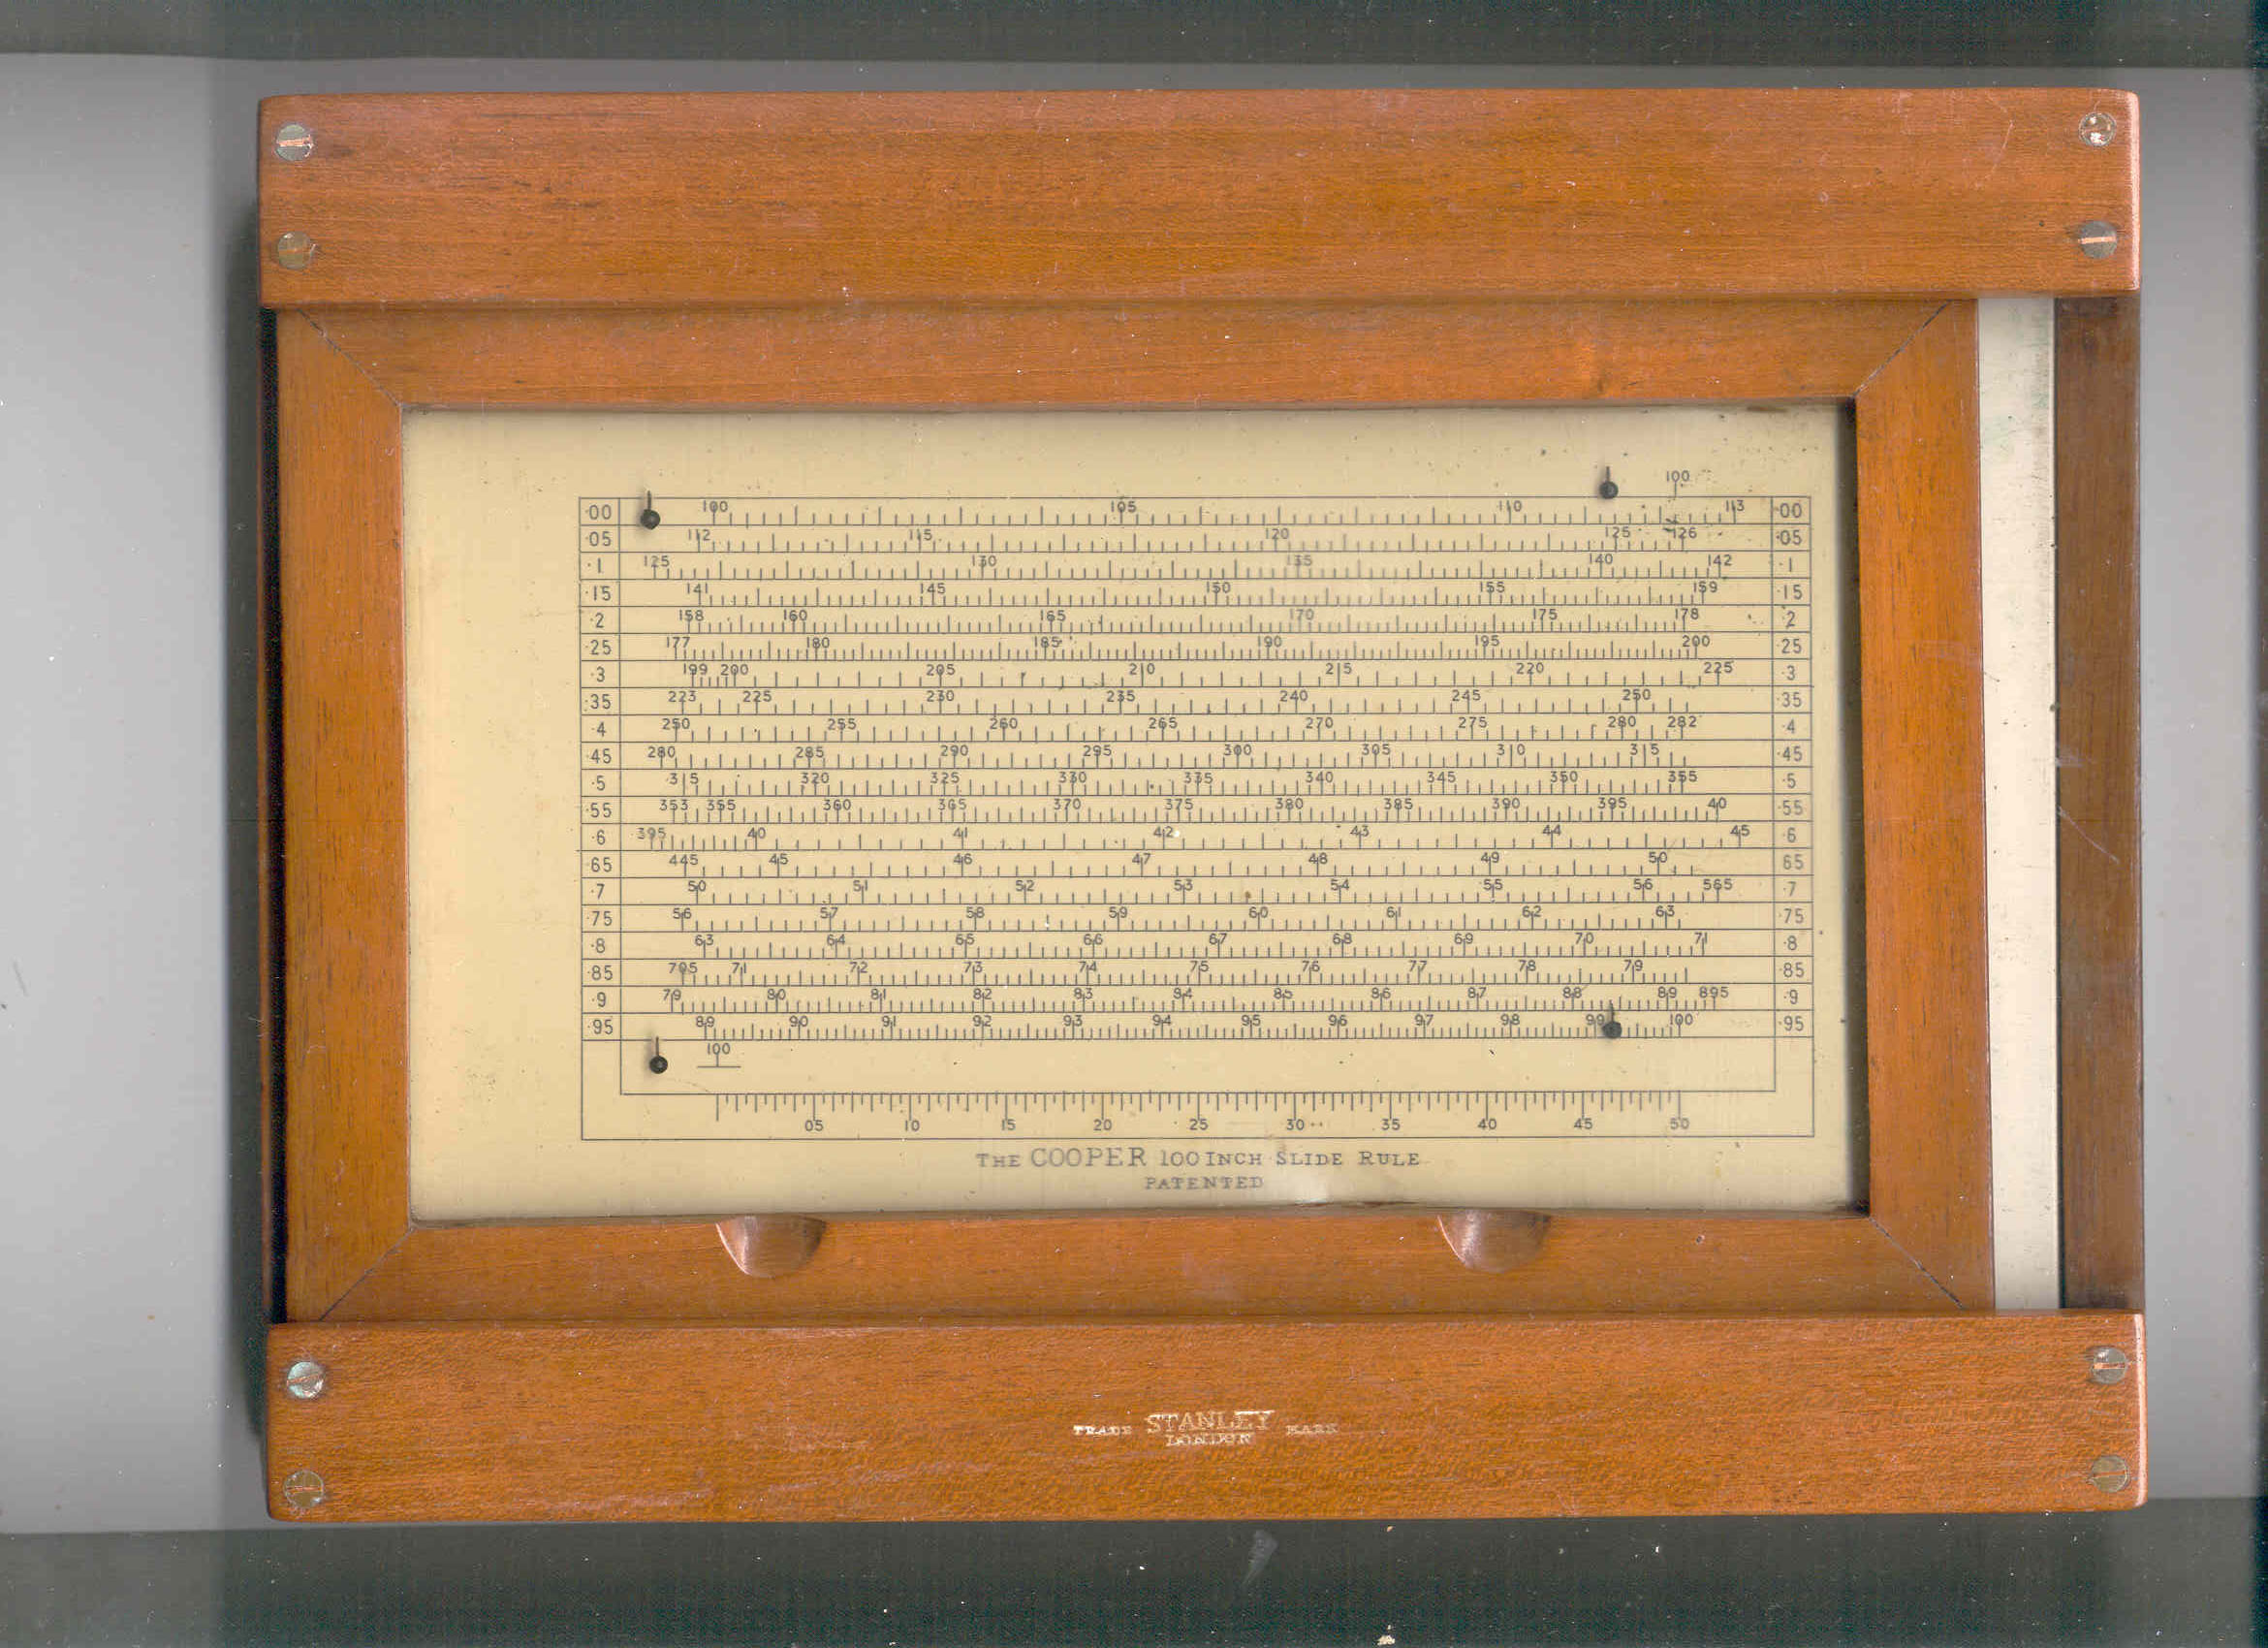 100
·00 100 105 110 113 ·00
·05 112 115 120 125 126 ·05
·1 125 130 135 140 142 ·1
·15 141 145 150 155 159 ·15
·2 158 160 165 170 175 178 ·2
·25 177 180 185 190 195 200 ·25
·3 199 200 205 210 215 220 225 ·3
·35 223 225 230 235 240 245 250 ·35
·4 250 255 260 265 270 275 280 282 ·4
·45 280 285 290 295 300 305 310 315 ·45
·5 315 320 325 330 335 340 345 350 355 ·5
·55 353 355 360 365 370 375 380 385 390 395 40 ·55
·6 395 40 41 42 43 44 45 ·6
·65 445 45 46 47 48 49 50 65
·7 50 51 52 53 54 55 56 565 ·7
·75 56 57 58 59 60 61 62 63 ·75
·8 63 64 65 66 67 68 69 70 71 ·8
·85 705 71 72 73 74 75 76 77 78 79 ·85
·9 79 80 81 82 83 84 85 86 87 88 89 895 ·9
·95 89 90 91 92 93 94 95 96 97 98 99 100 ·95
100
05 10 15 20 25 30 35 40 45 50
THE COOPER 100 INCH SLIDE RULE
PATENTED
TRADE STANLEY MARK
LONDON